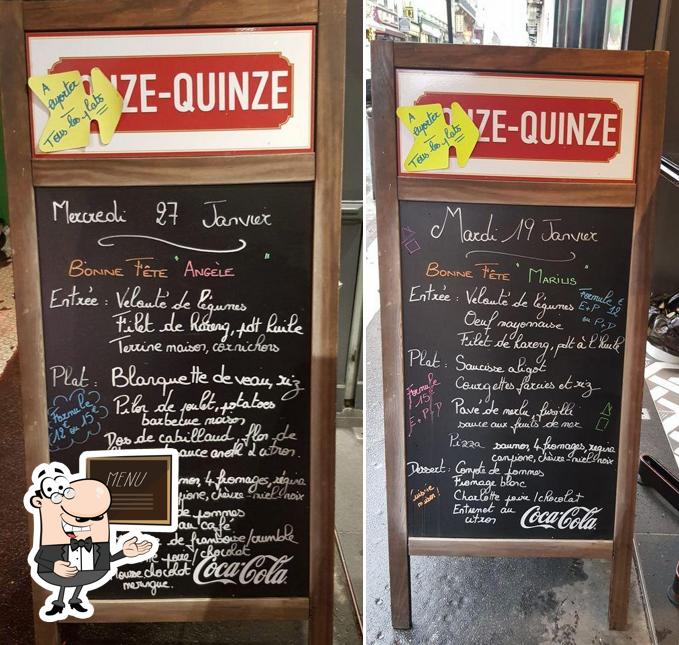 A
emporter
Tous les plats
NZE-QUINZE
Mercredi 27 Janvier
BONNE FÊTE "ANGÈLE"
Entrée : Velouté de légumes
Filet de hareng, pdt huile
Terrine maison, cornichons
Plat : Blanquette de veau, riz
Pilon de poulet, potatoes
barbecue maison
Formule
12€ ou 15€
Dos de cabillaud, flan de
sauce aneth citron.
saumon, 4 fromages, régina
chèvre-miel-noix
MENU
de pommes
au café
de framboise/crumble
poire/chocolat
Mousse chocolat
meringue.
Coca-Cola
A
emporter
Tous les plats
NZE-QUINZE
Mardi 19 Janvier
BONNE FÊTE "MARIUS"
Entrée : Velouté de légumes
Oeuf mayonnaise
Filet de hareng, pdt à l'huile
Formule €
E+P 12
ou P+D
Plat : Saucisse aligot
Courgettes farcies et riz
Formule
15€
E+P+D
Pavé de merlu, fusilli
sauce aux fruits de mer
Pizza saumon, 4 fromages, régina
campione, chèvre-miel-noix
Dessert : Compote de pommes
Fromage blanc
Charlotte poire/chocolat
Entremet au
citron
maison!
Coca-Cola